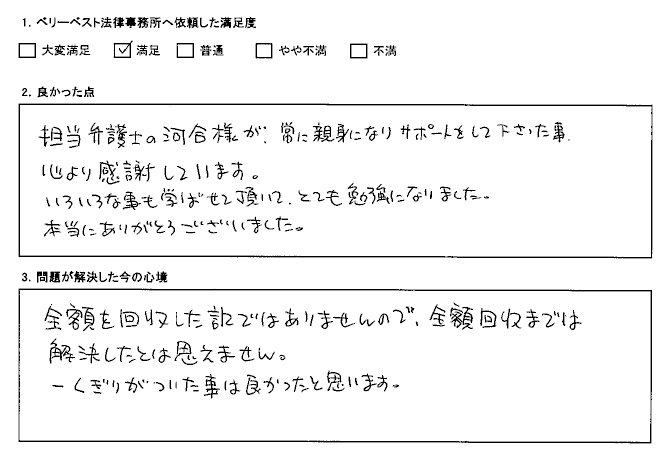 1. ベリーベスト法律事務所へ依頼した満足度
□ 大変満足 ☑ 満足 □ 普通 □ やや不満 □ 不満
2. 良かった点
担当弁護士の河合様が、常に親身になりサポートをして下さった事、
心より感謝しています。
いろいろな事も学ばせて頂いて、とても勉強になりました。
本当にありがとうございました。
3. 問題が解決した今の心境
全額を回収した訳ではありませんので、全額回収までは
解決したとは思えません。
一くぎりがついた事は良かったと思います。